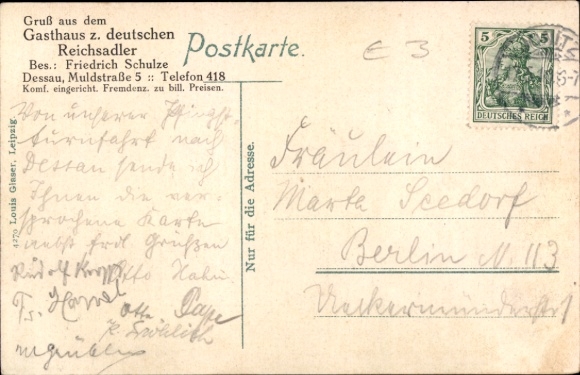 Gruß aus dem
Gasthaus z. deutschen
Reichsadler
Bes.: Friedrich Schulze
Dessau, Muldstraße 5 :: Telefon 418
Komf. eingericht. Fremdenz. zu bill. Preisen.
Postkarte.
E 3
5 5
DEUTSCHES REICH
Von unserer Pfingst-
turnfahrt nach
Dessau sende ich
Ihnen die ver-
sprochene Karte
nebst frdl. Grüßen
Otto Hahn
Rudolf
Otto Pape
4270 Louis Glaser, Leipzig.
Nur für die Adresse.
Fräulein
Marta Seedorf
Berlin N. 113
Ueckermünderstr 1